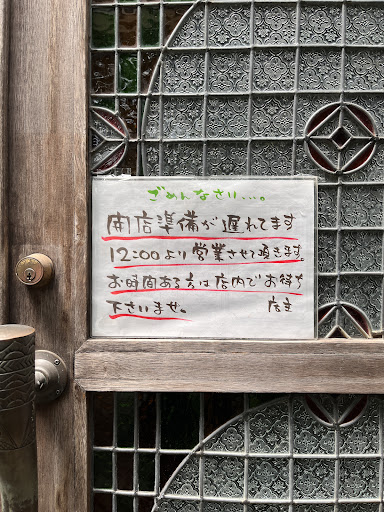 ごめんなさい....。
開店準備が遅れてます
12:00より営業させて頂きます。
お時間ある方は店内でお待ち
下さいませ。 店主